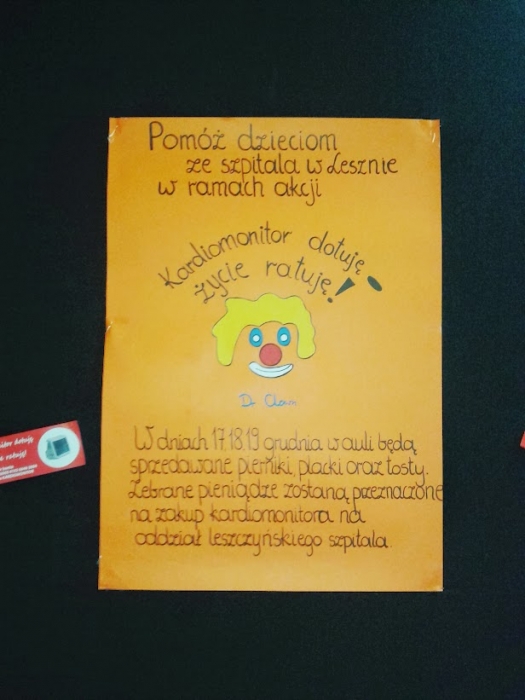 Pomóż dzieciom
ze szpitala w Lesznie
w ramach akcji
Kardiomonitor dotuję,
życie ratuję!
Dr Clown
W dniach 17,18,19 grudnia w auli będą
sprzedawane pierniki, placki oraz tosty.
Zebrane pieniądze zostaną przeznaczone
na zakup kardiomonitora na
oddział leszczyńskiego szpitala.
dotuję
ratuję!